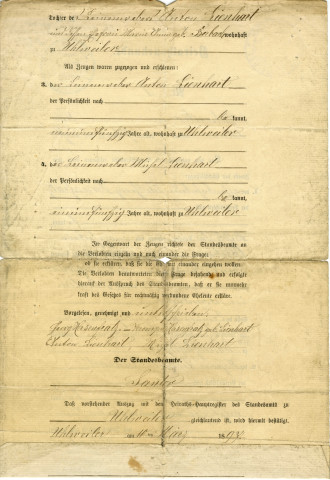 Tochter des Leinenweber Anton Lienhart
wohnhaft
zu Uhlweiler
Als Zeugen waren zugezogen und erschienen:
3. der Leinenweber Anton Lienhart
der Persönlichkeit nach
be kannt,
neunundfünfzig Jahre alt, wohnhaft zu Uhlweiler
4. der Leinenweber Lienhart
der Persönlichkeit nach
be kannt,
Jahre alt, wohnhaft zu Uhlweiler
In Gegenwart der Zeugen richtete der Standesbeamte an
die Verlobten einzeln und nach einander die Frage:
ob sie erklären, daß sie die Ehe mit einander eingehen wollen.
Die Verlobten beantworteten diese Frage bejahend und erfolgte
hierauf der Ausspruch des Standesbeamten, daß er sie nunmehr
kraft des Gesetzes für rechtmäßig verbundene Eheleute erkläre.
Vorgelesen, genehmigt und unterschrieben
geb. Lienhart
Anton Lienhart, Lienhart
Der Standesbeamte.
Daß vorstehender Auszug mit dem Heiraths-Hauptregister des Standesamts zu
Uhlweiler gleichlautend ist, wird hiermit bestätigt.
Uhlweiler am März 189